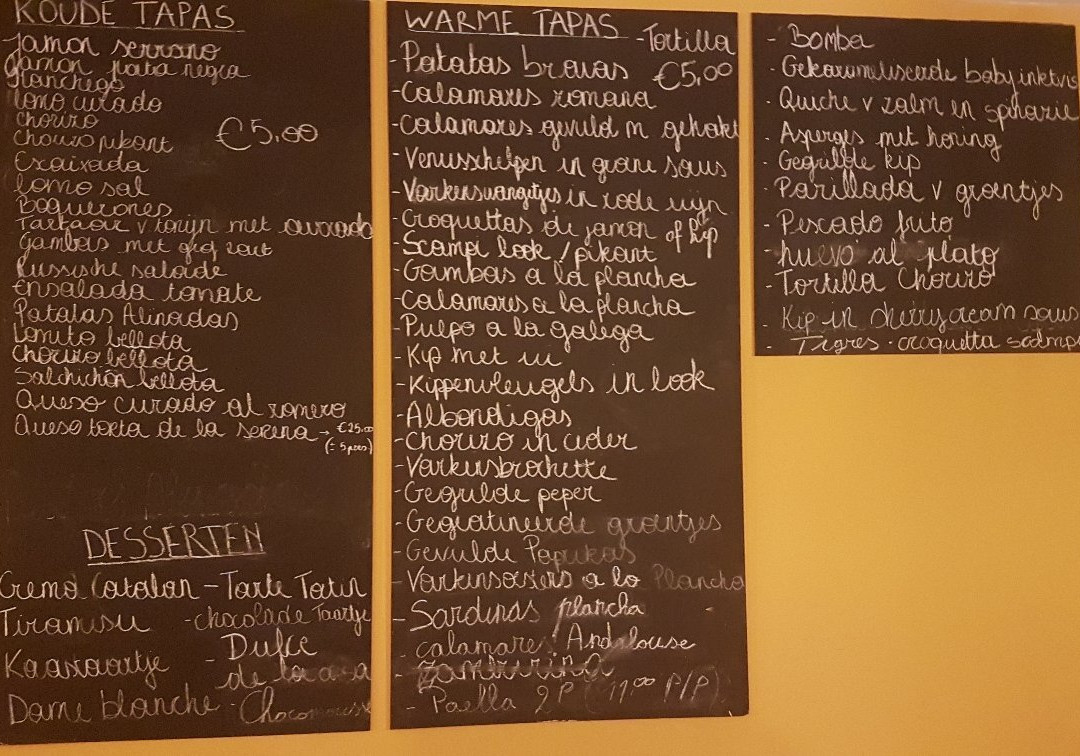 KOUDE TAPAS
Jamon serrano
Jamon pata negra
Manchego
lomo curado
chorizo
Chorizo pikant
€5,00
Esqixada
lomo sal
Boquerones
Tartaar v tonijn met avocado
Gambas met grof zout
Russische salade
Ensalada tomate
Patatas Alinadas
Lomito bellota
Chorizo bellota
Salchichón bellota
Queso curado al romero
Queso torta de la serena → €25,00
(± 5 pers)
DESSERTEN
Crema Catalan - Tarte Tatin
Tiramisu - chocolade Taartje
Kaastaartje - Dulce de la casa
Dame blanche - Chocomousse
WARME TAPAS
- Tortilla
- Patatas bravas €5,00
- Calamares romana
- Calamares gevuld m gehakt
- Venusschelpen in groene saus
- Varkenswangetjes in rode wijn
- Croquettas de jamon of kip
- Scampi look / pikant
- Gambas a la plancha
- Calamares a la plancha
- Pulpo a la galega
- Kip met ui
- Kippenvleugels in look
- Albondigas
- Chorizo in cider
- Varkensbrochette
- Gegrilde peper
- Gegratineerde groentjes
- Gevulde Paprikas
- Varkensoesters a la Plancha
- Sardinas plancha
- calamares Andalouse
- Zamburina
- Paella 2P (11,00 P/P)
- Bomba
- Gekarameliseerde babyinktvis
- Quiche v zalm en spinazie
- Asperges met honing
- Gegrilde kip
- Parillada v groentjes
- Pescado frito
- huevo al plato
- Tortilla Chorizo
- Kip in cherrycream saus
- Tigres - croquetta scampi